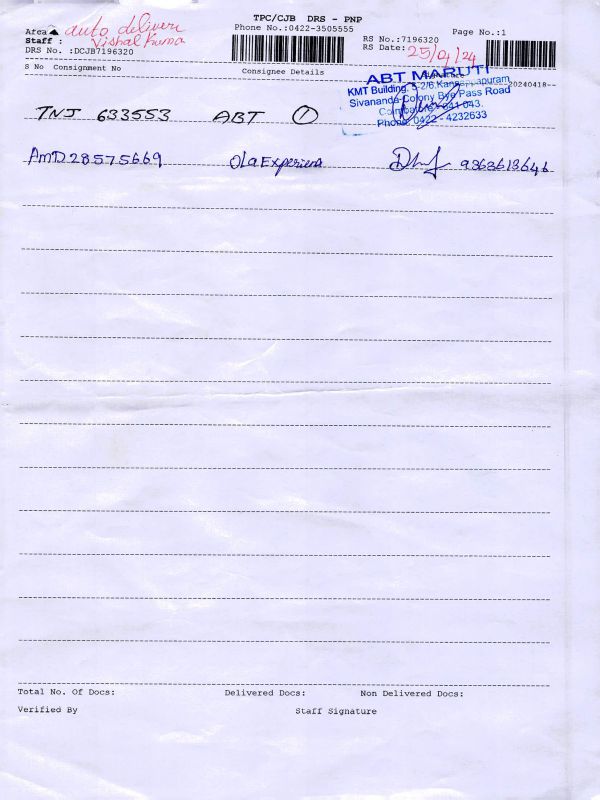 TPC/CJB DRS - PNP
Phone No.:0422-3505555
Page No.:1
auto deliveri
Staff :
Vishal Kuma
RS No.:7196320
RS Date: 25/04/24
DRS No. :DCJB7196320
S No Consignment No
Consignee Details
20240418--
ABT MARUTI
KMT Building, 5-2/6, Kannappapuram,
Sivananda Colony Bye Pass Road
Coimbatore - 641 043.
Phone: 0422 - 4232633
TNJ 633553 ABT 1
AMD28575669 Ola Experiens 9363613646
Total No. Of Docs:
Delivered Docs:
Non Delivered Docs:
Verified By
Staff Signature